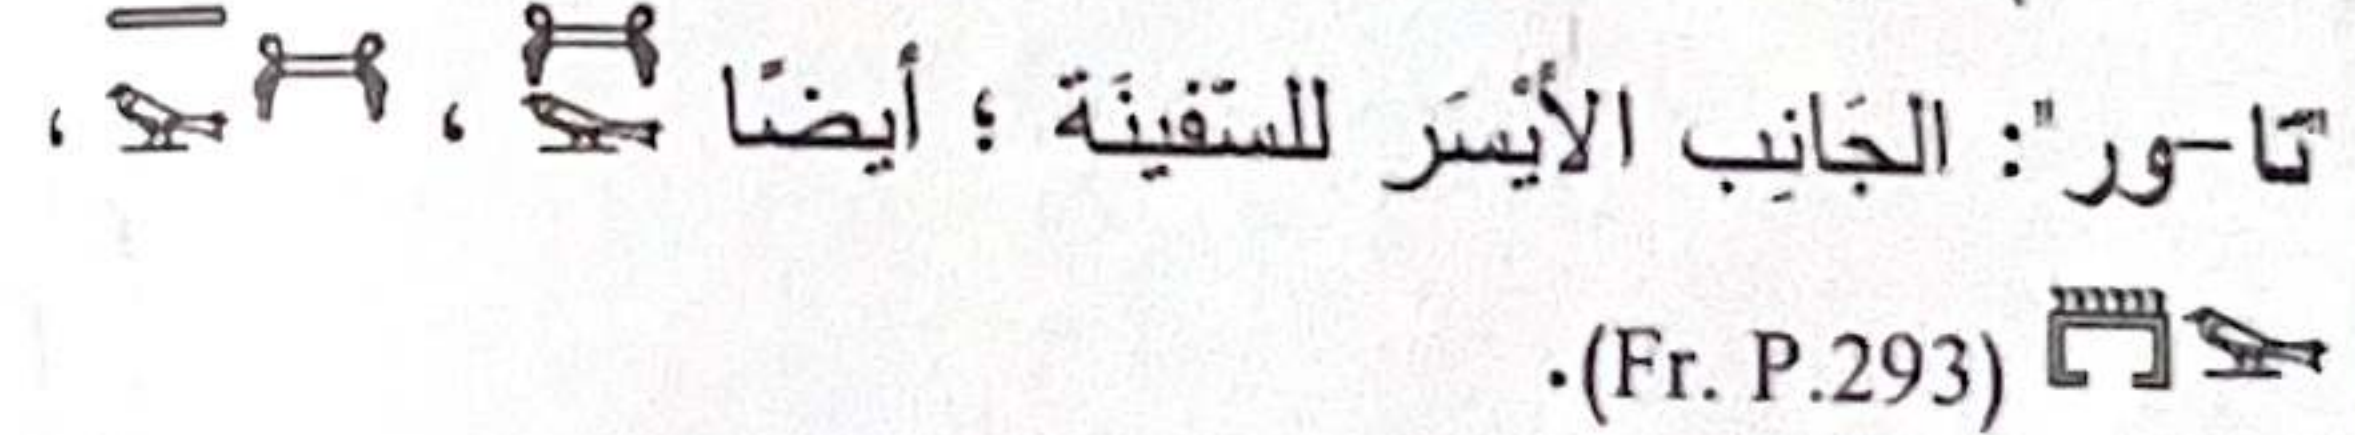 "تا-ور": الجَانِب الأيْسَر للسّفينَة ؛ أيضًا 𓎛 ، ،
(Fr. P.293).